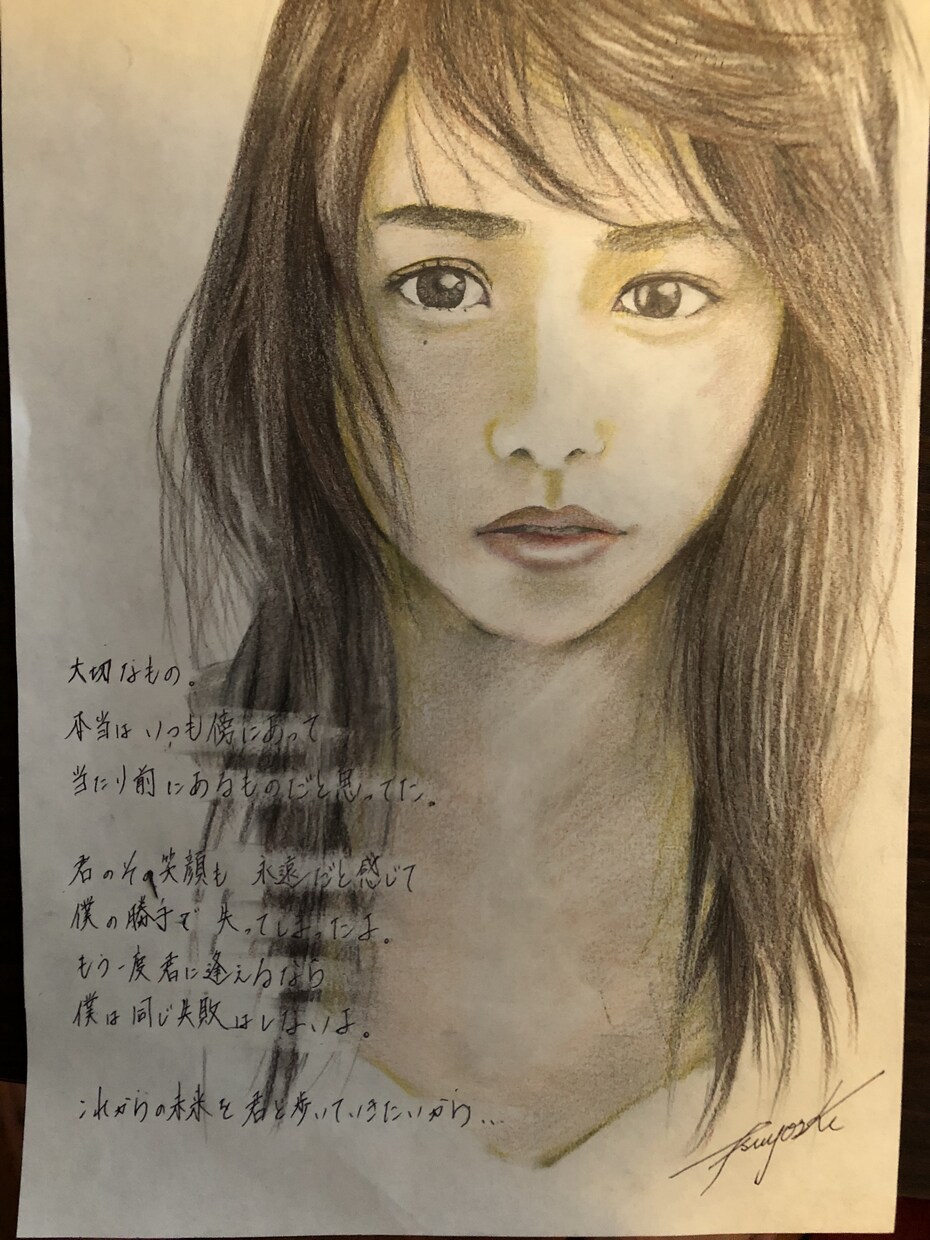 大切なもの。
本当は いつも傍にあって
当たり前にあるものだと思ってた。
君のその笑顔も 永遠だと感じて
僕の勝手で 失ってしまったよ。
もう一度君に逢えるなら
僕は同じ失敗はしないよ。
これからの未来を君と歩いていきたいから...